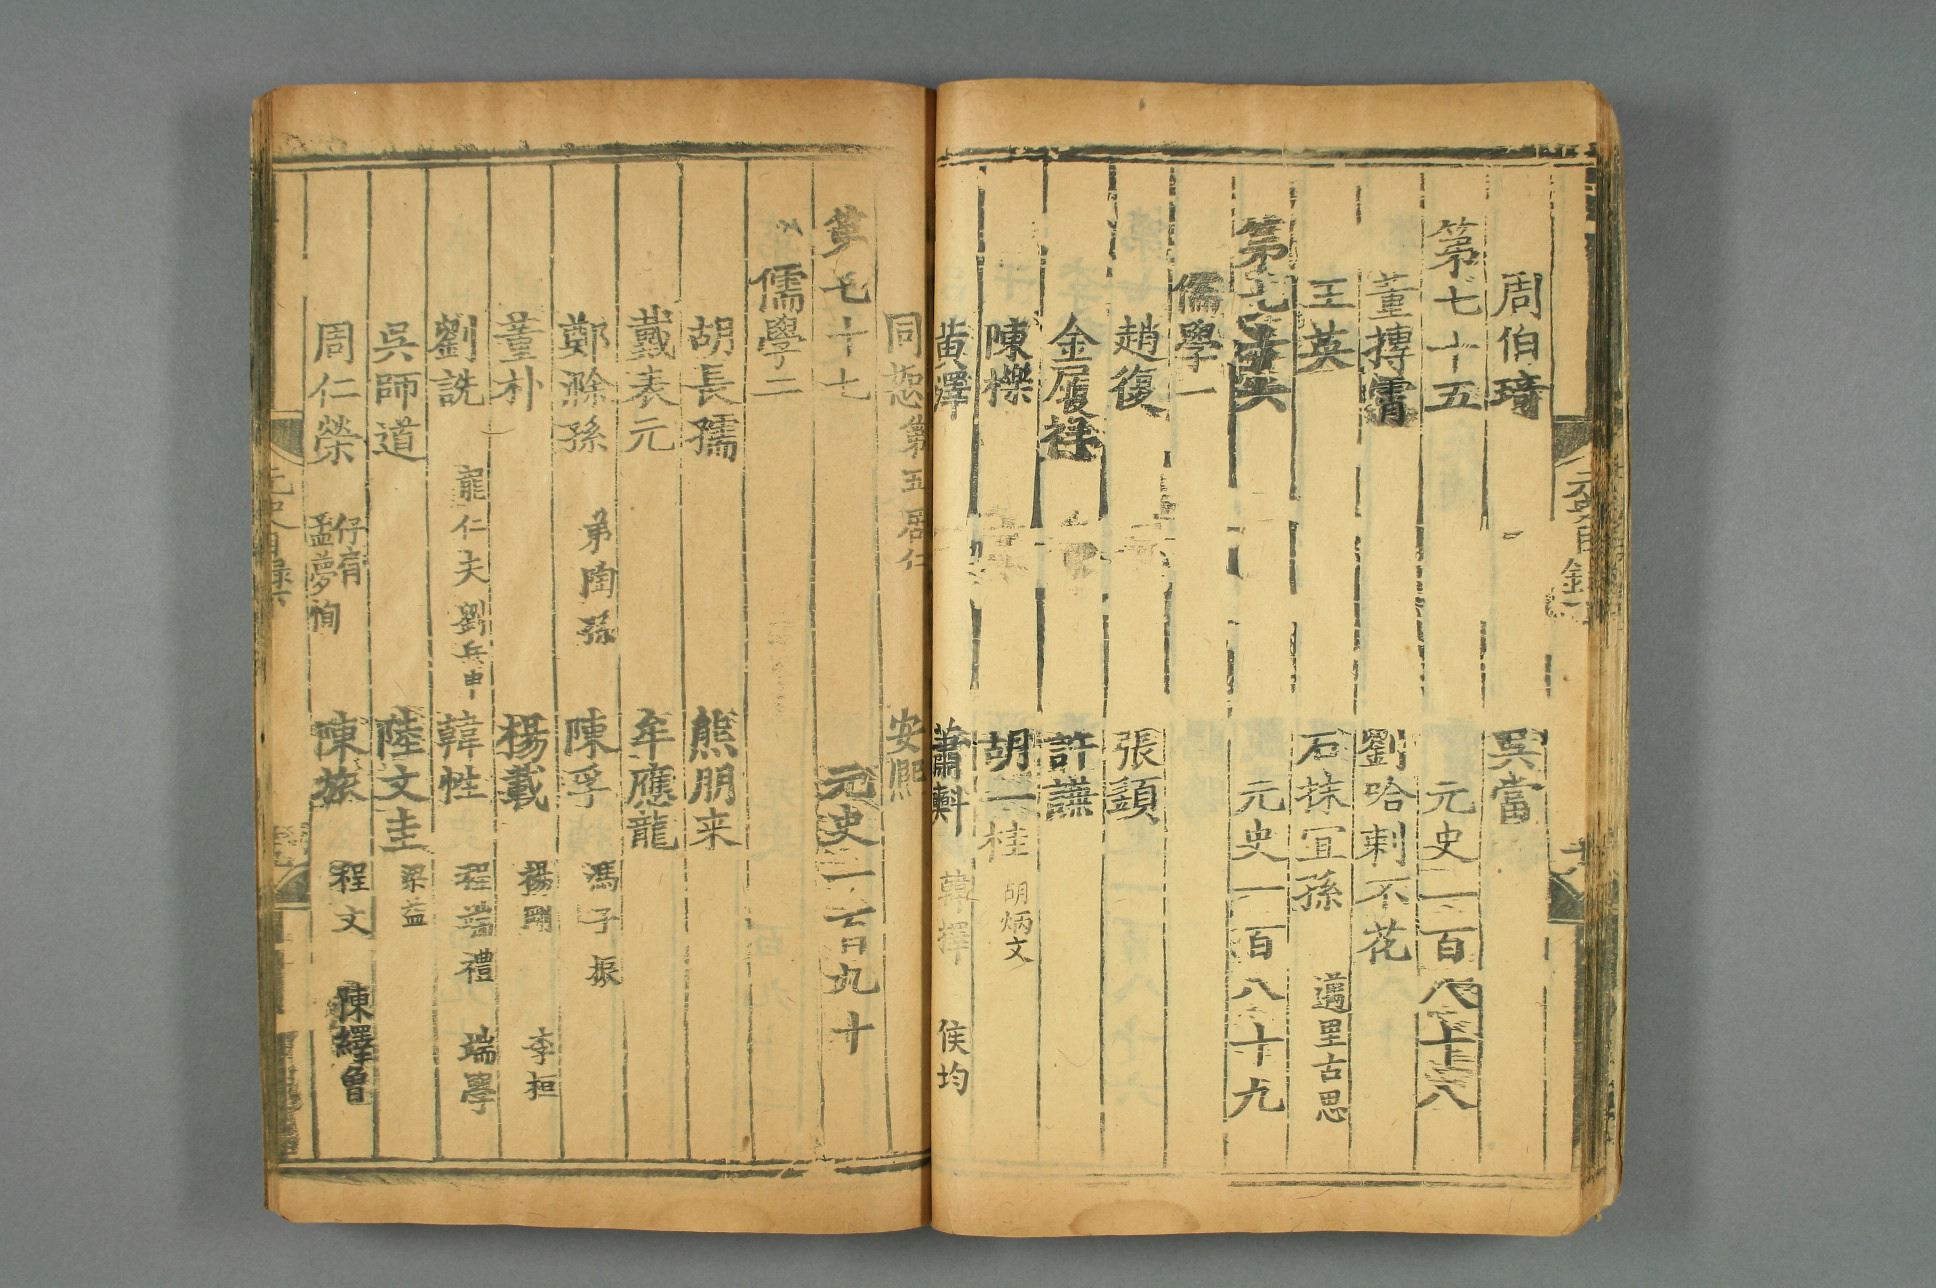 周伯琦 吳當
第七十五 元史一百八十八
董摶霄 劉哈剌不花
王英 石抹宜孫 邁里古思
第七十六 元史一百八十九
儒學一
趙復 張䇓
金履祥 許謙
陳櫟 胡一桂 胡炳文
黃澤 蕭𣂏 韓擇 侯均
同恕 第五居仁 安熙
第七十七 元史一百九十
儒學二
胡長孺 熊朋来
戴表元 牟應龍
鄭滁孫 弟陶孫 陳孚 馮子振
董朴 楊載 楊剛 李桓
劉詵 龍仁夫 劉岳申 韓性 程端禮 端學
吳師道 陸文圭 梁益
周仁榮 仔肩 孟夢恂 陳旅 程文 陳繹曾
元史目錄